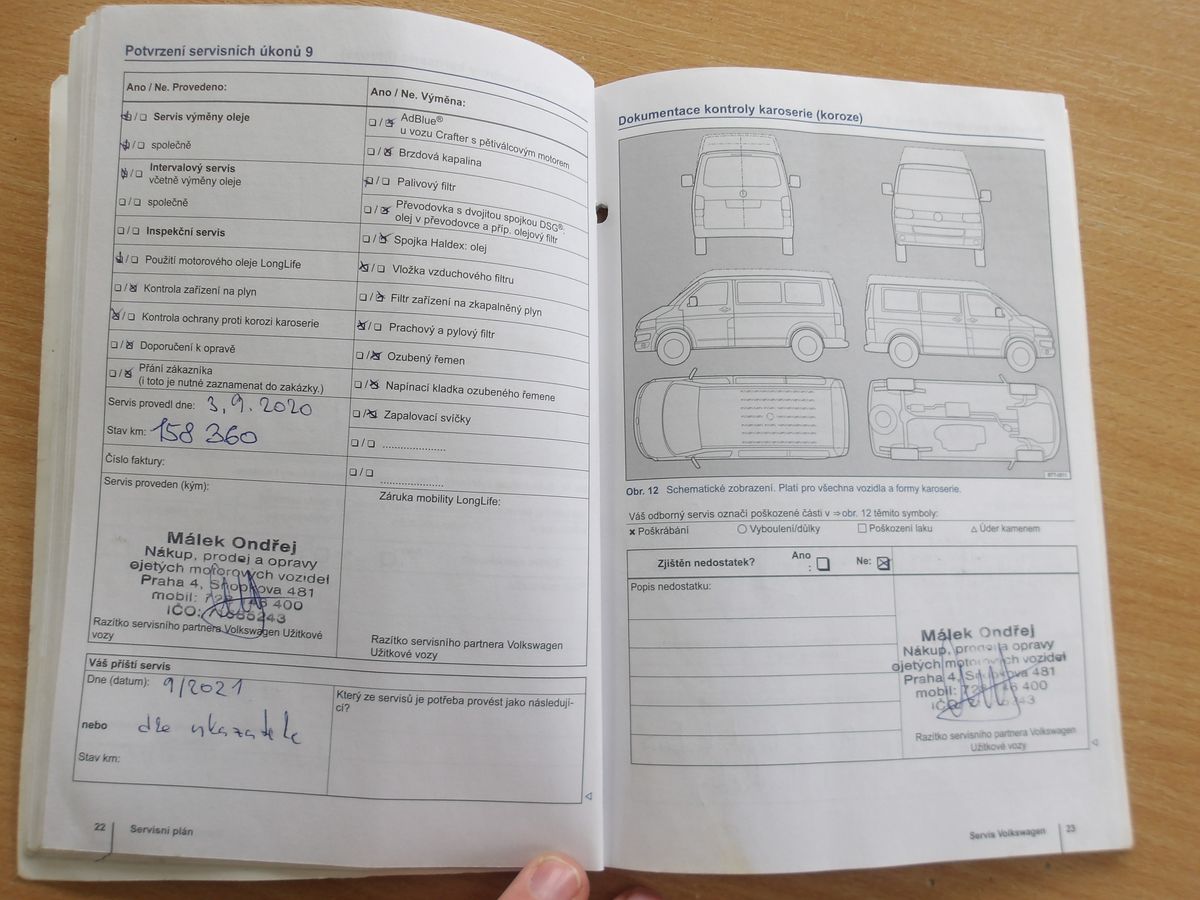 Potvrzení servisních úkonů 9
Ano / Ne. Provedeno:
❏ / ❏ Servis výměny oleje
❏ / ❏ společně
❏ / ❏ Intervalový servis
včetně výměny oleje
❏ / ❏ společně
❏ / ❏ Inspekční servis
❏ / ❏ Použití motorového oleje LongLife
❏ / ❏ Kontrola zařízení na plyn
❏ / ❏ Kontrola ochrany proti korozi karoserie
❏ / ❏ Doporučení k opravě
❏ / ❏ Přání zákazníka
(i toto je nutné zaznamenat do zakázky.)
Servis provedl dne: 3.9.2020
Stav km: 158 360
Číslo faktury:
Servis proveden (kým):
Málek Ondřej
Nákup, prodej a opravy
ojetých motorových vozidel
Praha 4, Snopkova 481
mobil: 400
IČO:
Razítko servisního partnera Volkswagen Užitkové
vozy
Ano / Ne. Výměna:
❏ / ❏ AdBlue®
u vozu Crafter s pětiválcovým motorem
❏ / ❏ Brzdová kapalina
❏ / ❏ Palivový filtr
❏ / ❏ Převodovka s dvojitou spojkou DSG®:
olej v převodovce a příp. olejový filtr
❏ / ❏ Spojka Haldex: olej
❏ / ❏ Vložka vzduchového filtru
❏ / ❏ Filtr zařízení na zkapalněný plyn
❏ / ❏ Prachový a pylový filtr
❏ / ❏ Ozubený řemen
❏ / ❏ Napínací kladka ozubeného řemene
❏ / ❏ Zapalovací svíčky
❏ / ❏ .....................
❏ / ❏ .....................
Záruka mobility LongLife:
Razítko servisního partnera Volkswagen
Užitkové vozy
Váš příští servis
Dne (datum): 9/2021
nebo dle ukazatele
Stav km:
Který ze servisů je potřeba provést jako následují-
cí?
22 Servisní plán
Dokumentace kontroly karoserie (koroze)
Obr. 12 Schematické zobrazení. Platí pro všechna vozidla a formy karoserie.
Váš odborný servis označí poškozené části v ⇒ obr. 12 těmito symboly:
✖ Poškrábání ○ Vyboulení/důlky □ Poškození laku △ Úder kamenem
Zjištěn nedostatek? Ano : ❏ Ne: ☒
Popis nedostatku:
Málek Ondřej
Nákup, prodej a opravy
ojetých motorových vozidel
Praha 4, Snopkova 481
mobil: 400
Razítko servisního partnera Volkswagen
Užitkové vozy
Servis Volkswagen 23